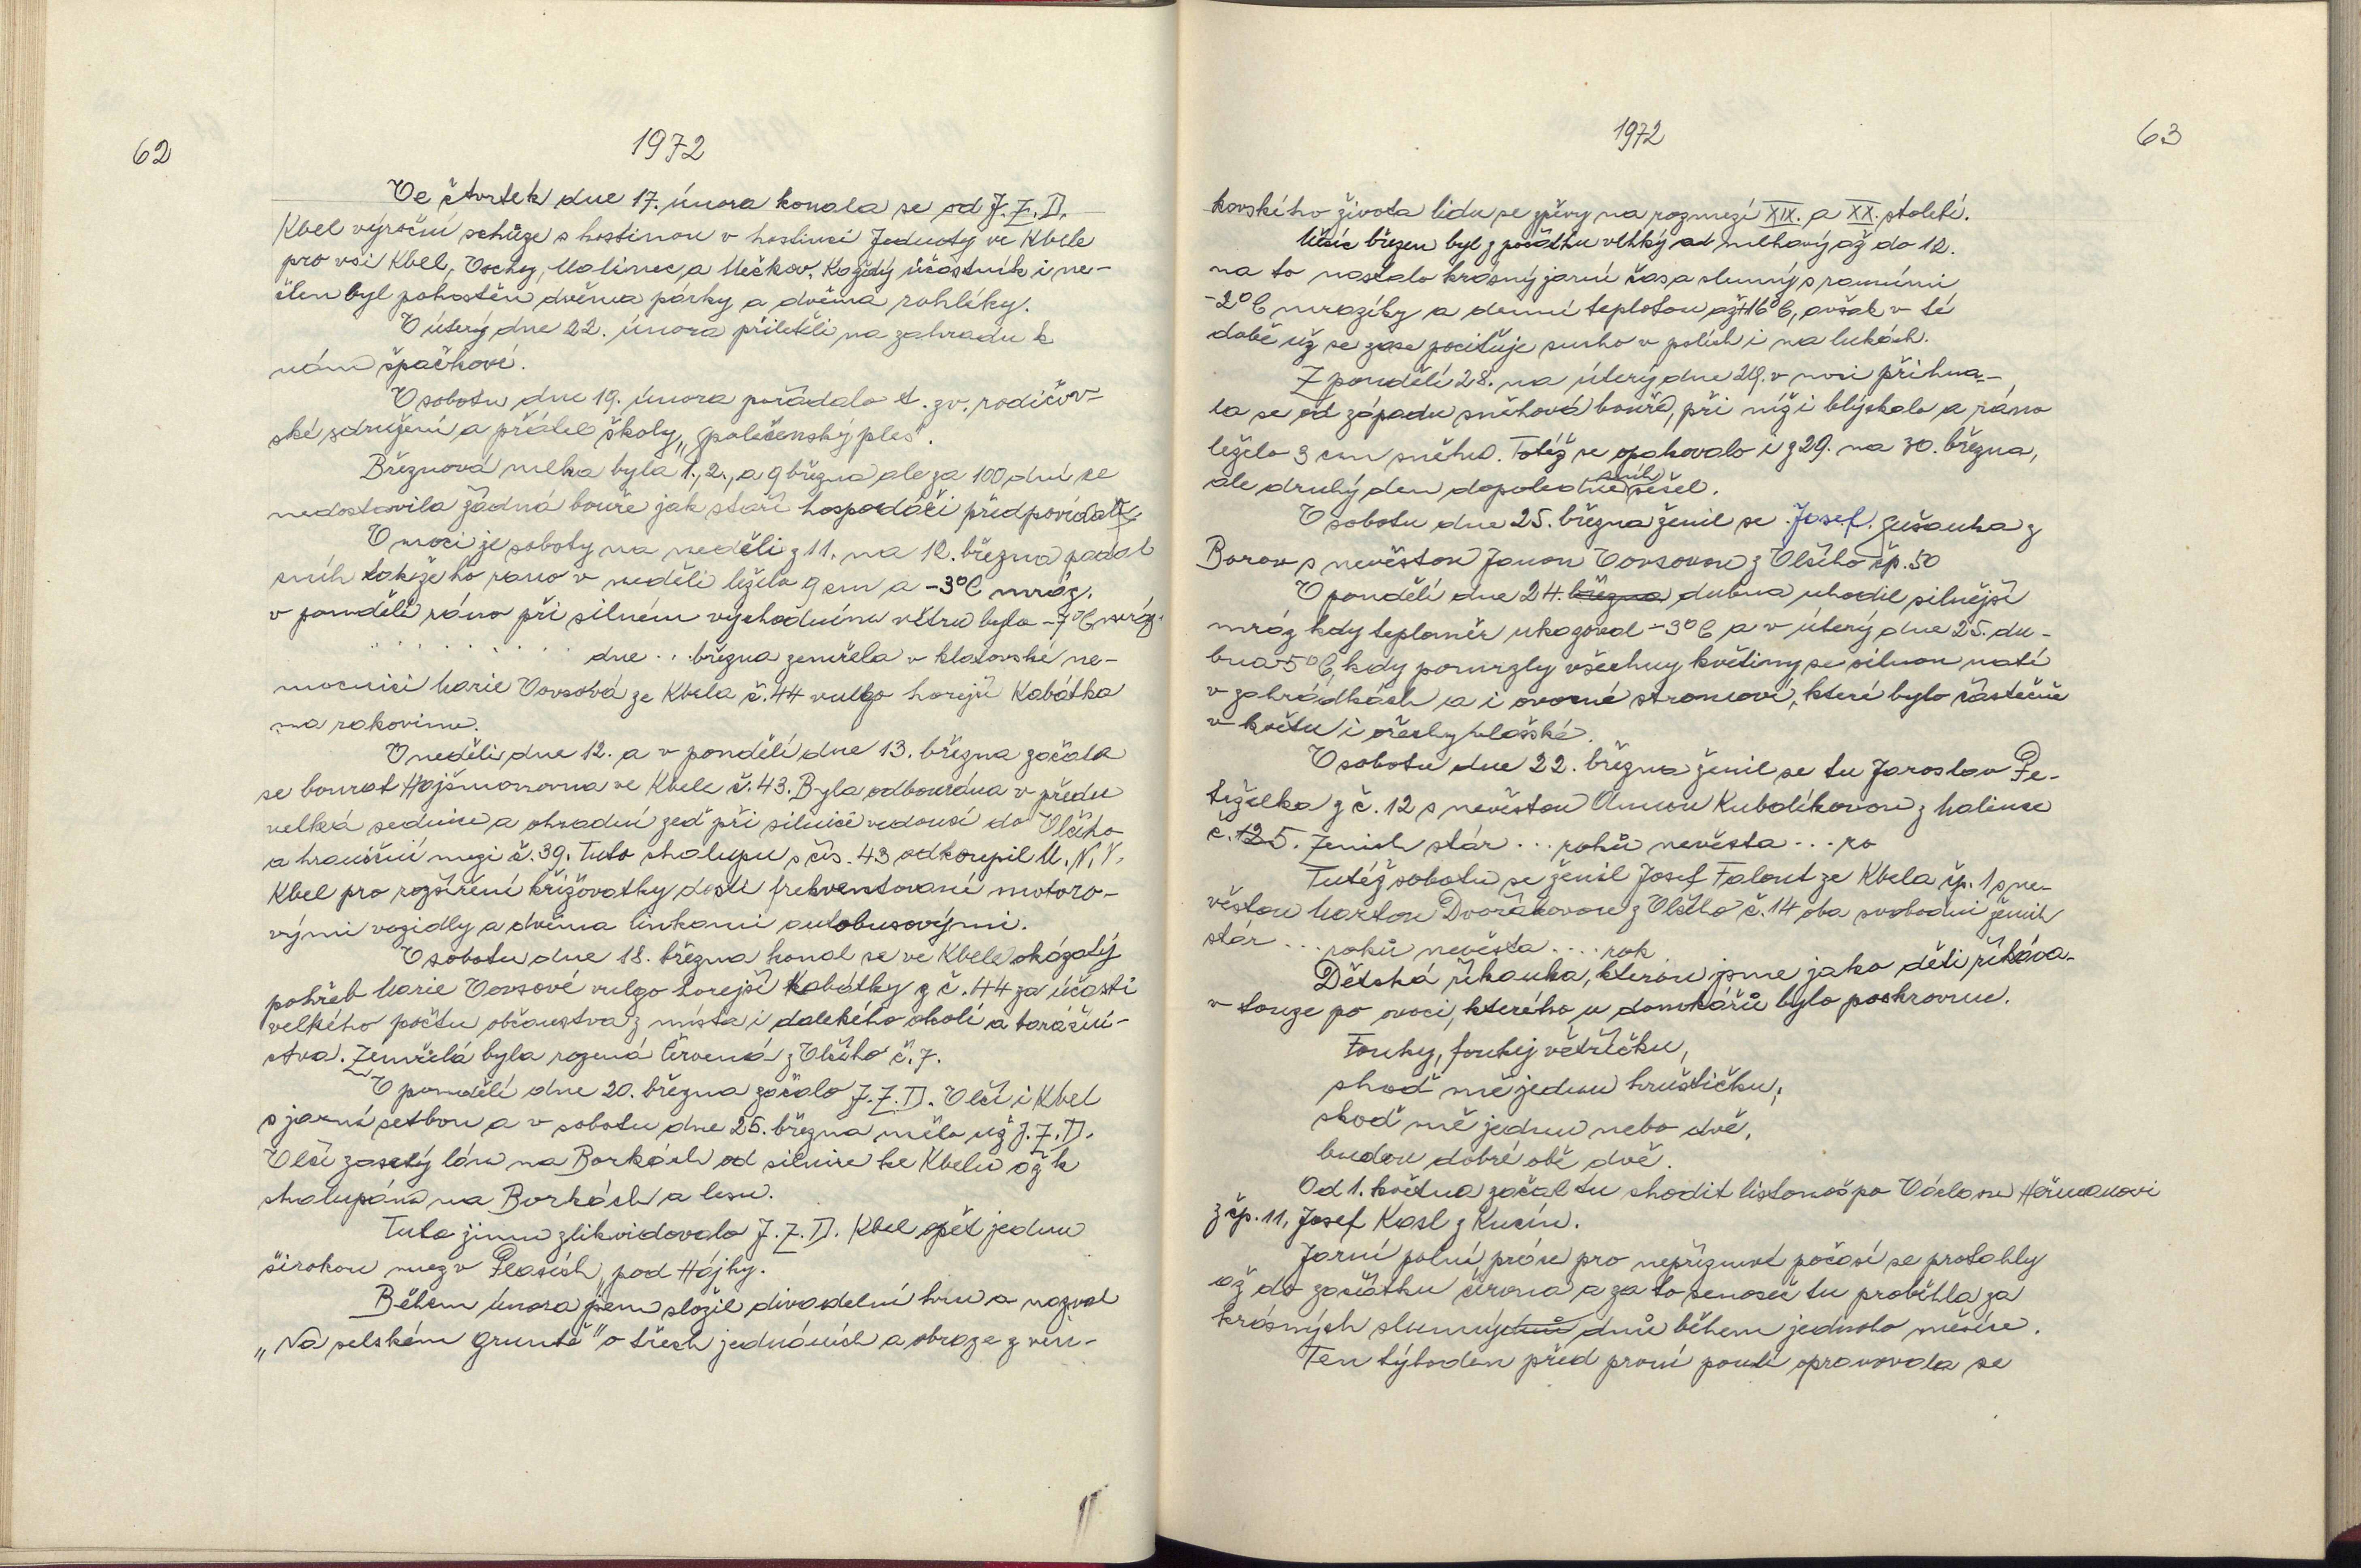 62
1972
Ve čtvrtek dne 17. února konala se od J.Z.D.
Kbel výroční schůze s hostinou v hostinci Jednoty ve Kbele
pro vsi Kbel, Vochoz, Malinec a Mečkov. Každý účastník i ne-
člen byl pohostěn dvěma párky a dvěma rohlíky.
V úterý dne 22. února přiletěli na zahradu k
nám špačkové.
V sobotu dne 19. února pořádalo t. zv. rodičov-
ské sdružení a přátel školy „společenský ples".
Březnová mlha byla 1., 2., a 9 března ale za 100 dní se
nedostavila žádná bouře jak staří hospodáři předpovídali.
V noci ze soboty na neděli z 11. na 12. března padal
sníh takže ho ráno v neděli leželo 9 cm a -3°C mráz.
v pondělí ráno při silném východním větru bylo -7°C mráz.
. . . . . . . . . dne . . . března zemřela v klatovské ne-
mocnici Marie Vovsová ze Kbela č. 44 vulgo horejší Kabátka
na rakovinu.
V neděli dne 12. a v pondělí dne 13. března začala
se bourat Hajšmanovna ve Kbele č. 43. Byla odbourána v předu
velká sednice a ohradní zeď při silnici vedoucí do Vlčího
a hraniční mezi č. 39. Tuto chalupu s čís. 43 odkoupil M.N.V.
Kbel pro rozšíření křižovatky dosti frekventované motoro-
vými vozidly a dvěma linkami autobusovými.
V sobotu dne 18. března konal se ve Kbele okázalý
pohřeb Marie Vovsové vulgo horejší Kabátky z č. 44 za účasti
velkého počtu občanstva z místa i dalekého okolí a baráční-
ctva. Zemřelá byla rozená Červená z Vlčího č. 7.
V pondělí dne 20. března začalo J.Z.D. Vlčí i Kbel
s jarní setbou a v sobotu dne 25. března mělo už J.Z.D.
Vlčí zasetý lán na Borkách od silnice ke Kbelu až k
chalupám na Borkách a lesu.
Tuto zimu zlikvidovalo J.Z.D. Kbel opět jednu
širokou mez v Plasích „pod Hájky.
Během února jsem složil divadelní hru a nazval
„Na selském gruntě" o třech jednáních a obraze z ven-
1972
63
kovského života lidu se zpěvy na rozmezí XIX. a XX. století.
Měsíc březen byl z počátku vlhký ad mlhavý až do 12.
na to nastalo krásný jarní čas a slunný s ranními
-2°C mrazíky a denní teplotou až +16°C, avšak v té
době už se zase pociťuje sucho v polích i na lukách.
Z pondělí 28. na úterý dne 29. v noci přihna-
la se od západu sněhová bouře, při níž i blýskalo a ráno
leželo 3 cm sněhu. Totéž se opakovalo i z 29. na 30. března,
ale druhý den dopoledne sníh sešel.
V sobotu dne 25. března ženil se Josef Jušanka z
Borov s nevěstou Janou Vovsovou z Vlčího čp. 50
V pondělí dne 24. března dubna uhodil silnější
mráz kdy teploměr ukazoval -3°C a v úterý dne 25. du-
bna -5°C, kdy pomrzly všechny květiny se silnou natí
v zahrádkách a i ovocné stromoví, které bylo částečně
v květu i ořechy vlašské.
V sobotu dne 22. března ženil se tu Jaroslav Pe-
tželka z č. 12 s nevěstou Annou Kubalíkovou z Malince
č. 125. Ženich stár . . . roků nevěsta . . . ro
Tutéž sobotu se ženil Josef Falout ze Kbela čp. 1 s ne-
věstou Martou Dvořákovou z Vlčího č. 14 oba svobodní ženich
stár . . . roků nevěsta . . . rok
Dětská říkanka, kterou jsme jako děti říkáva-
v touze po ovoci, kterého u domkářů bylo poskrovnu.
Fouky, foukej větříčku,
shoď mě jednu hruštičku,
shoď mě jednu nebo dvě,
budou dobré obě dvě.
Od 1. května začal tu chodit listonoš po Václavu Heřmanovi
z čp. 11, Josef Kasl z Kucín.
Jarní polní práce pro nepřízniost počasí se protáhly
až do začátku června a za to senoseč tu proběhla za
krásných slunných dnů během jednoho měsíce.
Ten týhoden před první poutí opravovala se